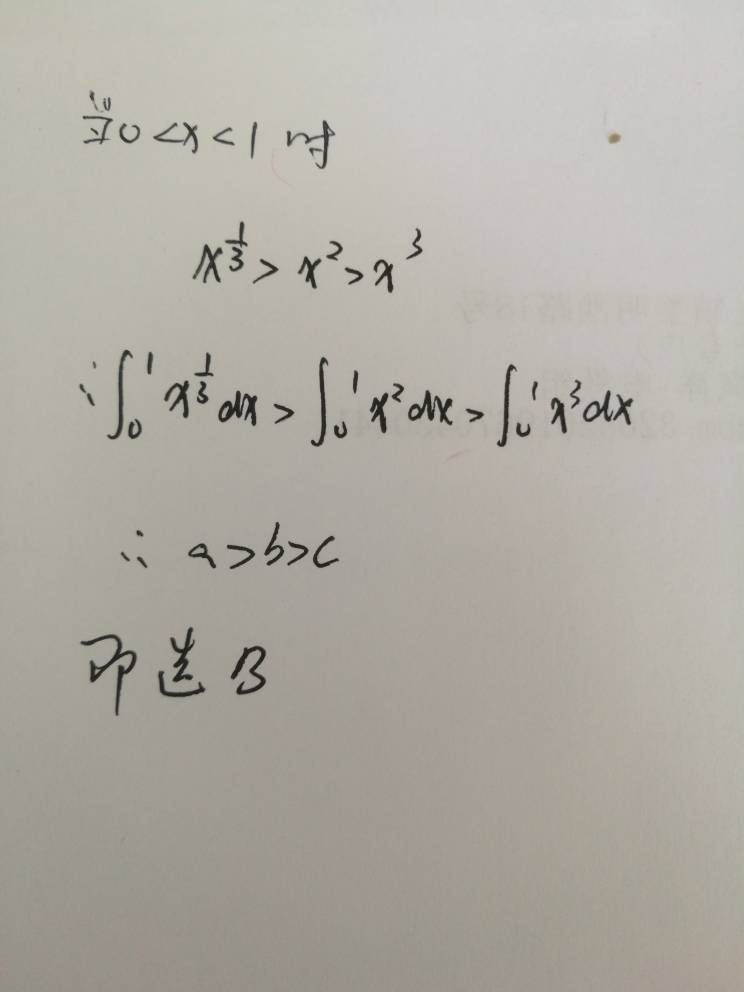 当0<x<1时
x^{1/3}>x²>x³
∵∫₀¹x^{1/3}dx>∫₀¹x²dx>∫₀¹x³dx
∴a>b>c
即选B